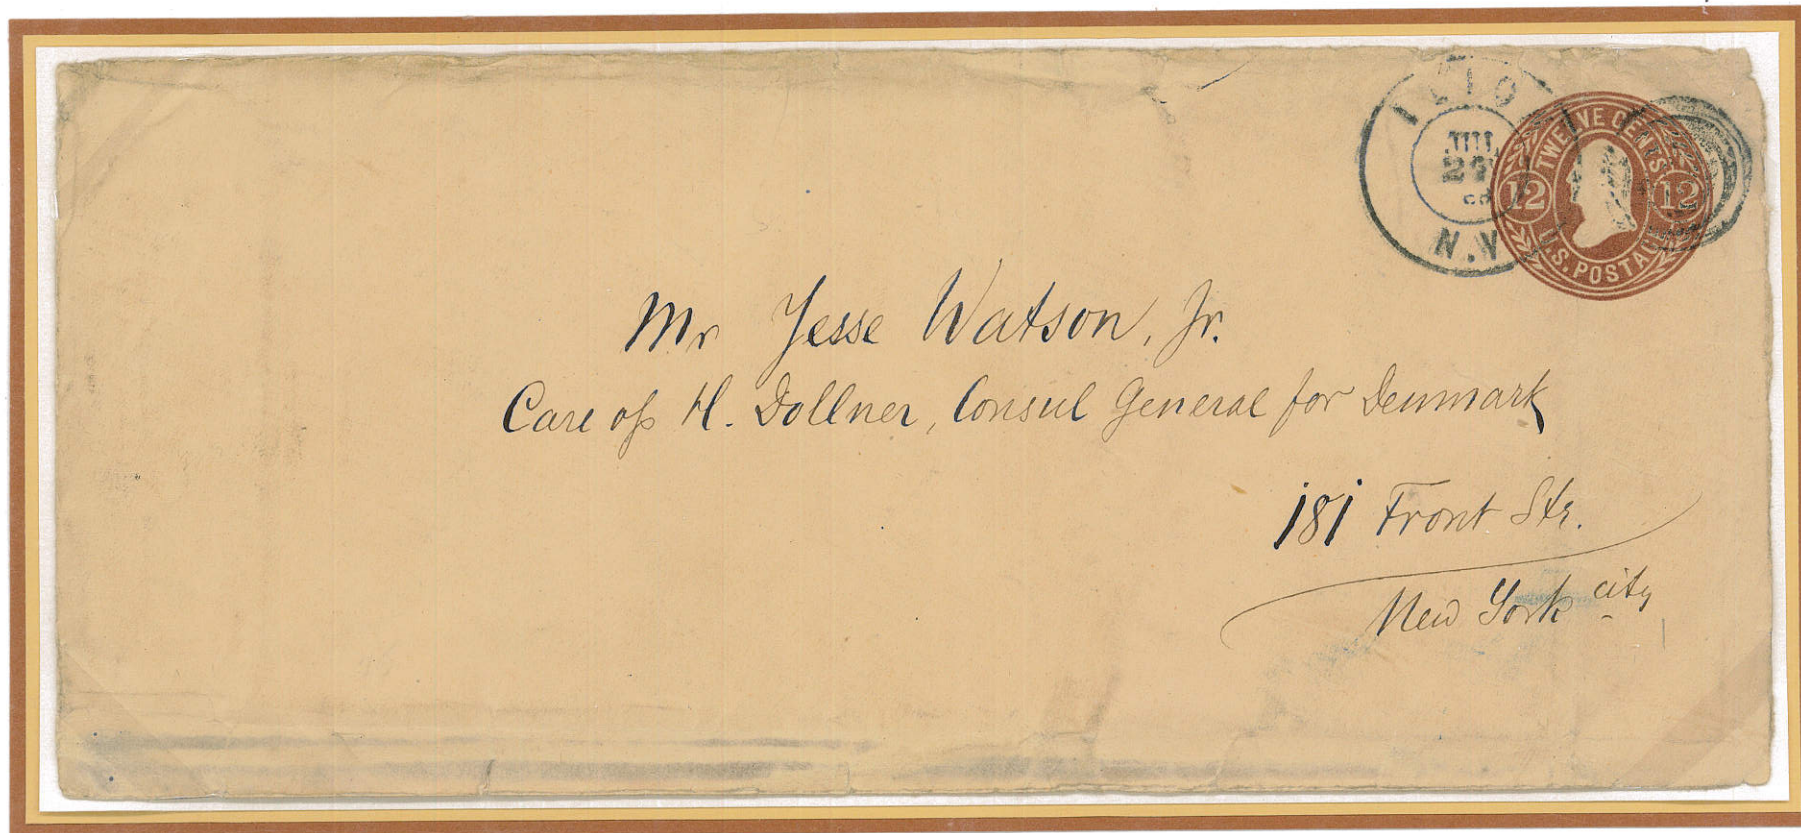 ILION
JUL
N.Y.
TWELVE CENTS
12 12
U.S. POSTAGE
Mr Jesse Watson, Jr.
Care of H. Dollner, Consul General for Denmark
181 Front Str.
New York city